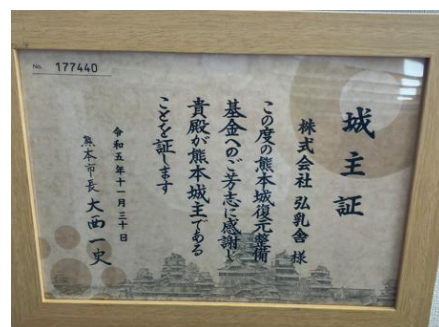 No. 177440
城主証
株式会社 弘乳舎 様
この度の熊本城復元整備
基金へのご芳志に感謝し
貴殿が熊本城主である
ことを証します
令和五年十一月三十日
熊本市長 大西一史